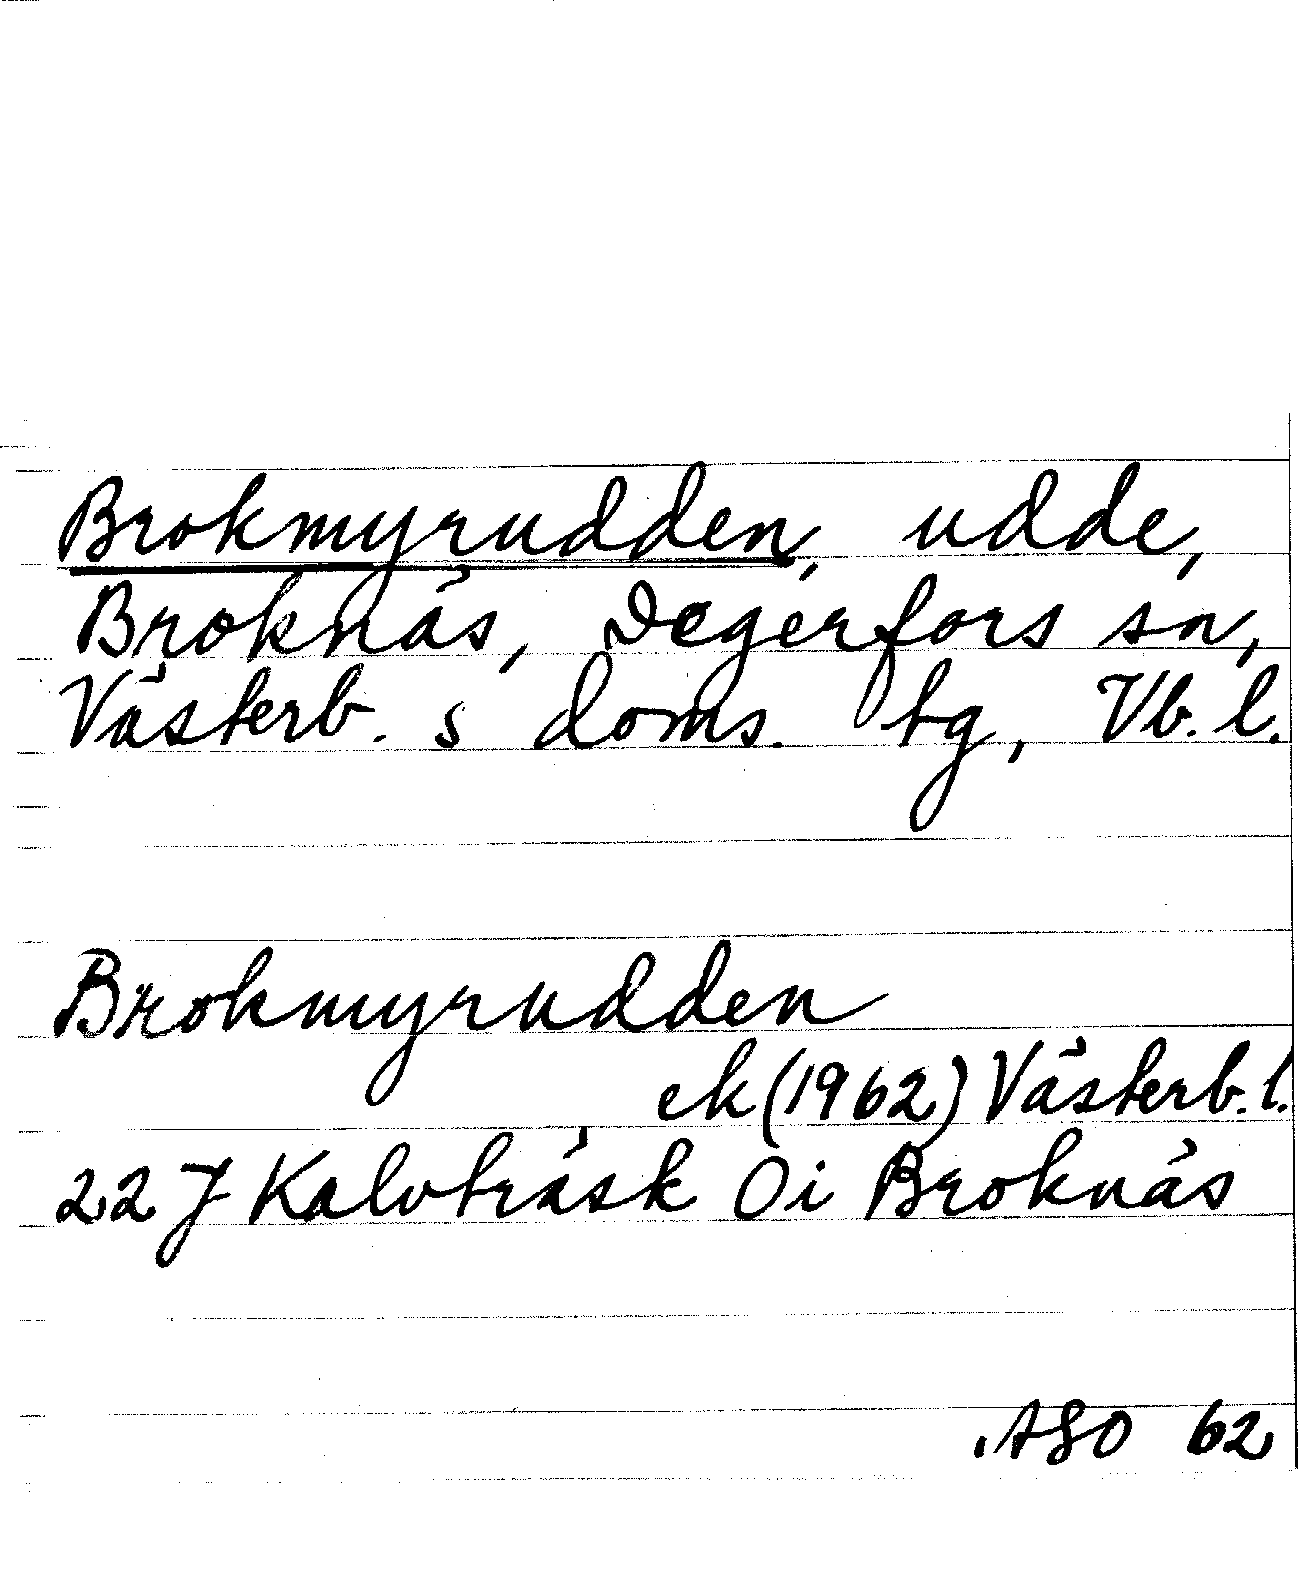 Brokmyrudden, udde,
Broknäs, Degerfors sn,
Västerb. s doms. tg, Vb. l.
Brokmyrudden
ek (1962) Västerb. l.
22 J Kalvträsk Oi Broknäs
ASO 62